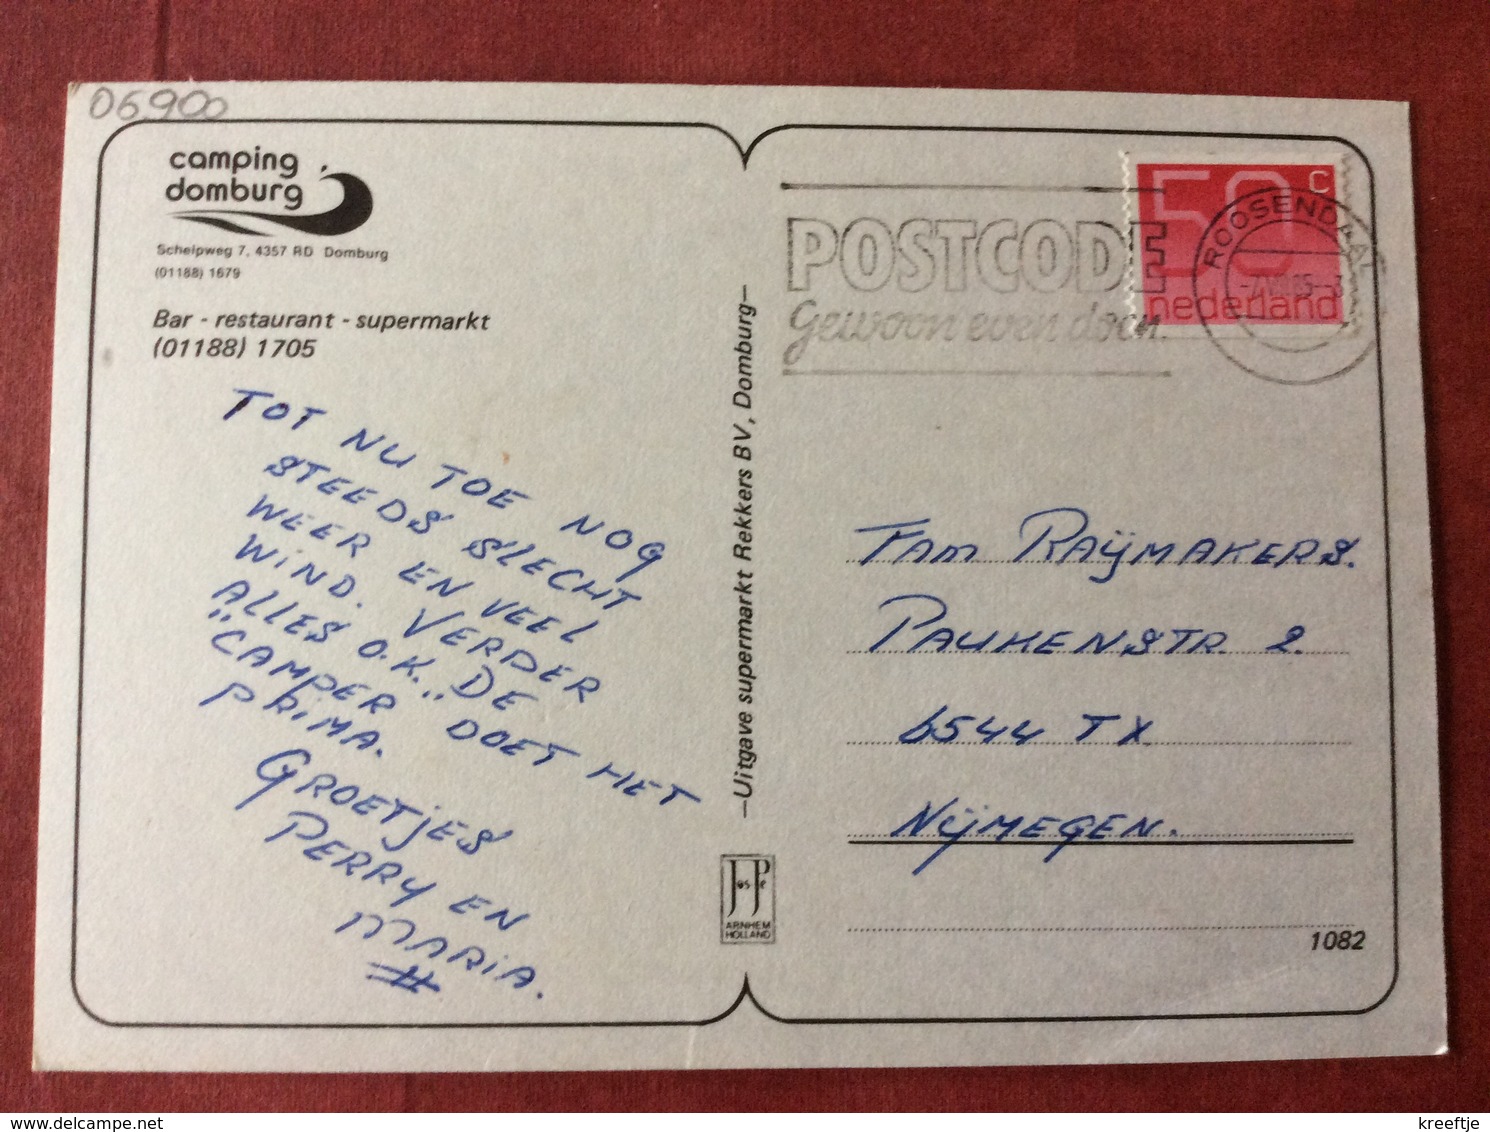 06900
camping
domburg
Schelpweg 7, 4357 RD Domburg
(01188) 1679
Bar - restaurant - supermarkt
(01188) 1705
TOT NU TOE NOG
STEEDS SLECHT
WEER EN VEEL
WIND. VERDER
ALLES O.K. DE
"CAMPER" DOET HET
PRIMA.
GROETJES
PERRY EN
MARIA.
—Uitgave supermarkt Rekkers BV, Domburg—
Jos Pé
ARNHEM
HOLLAND
POSTCODE
Gewoon even doen.
50 C
nederland
ROOSENDAAL
FAM RAYMAKERS.
PAUKENSTR. 2.
6544 TX
NIJMEGEN.
1082
kreeftje